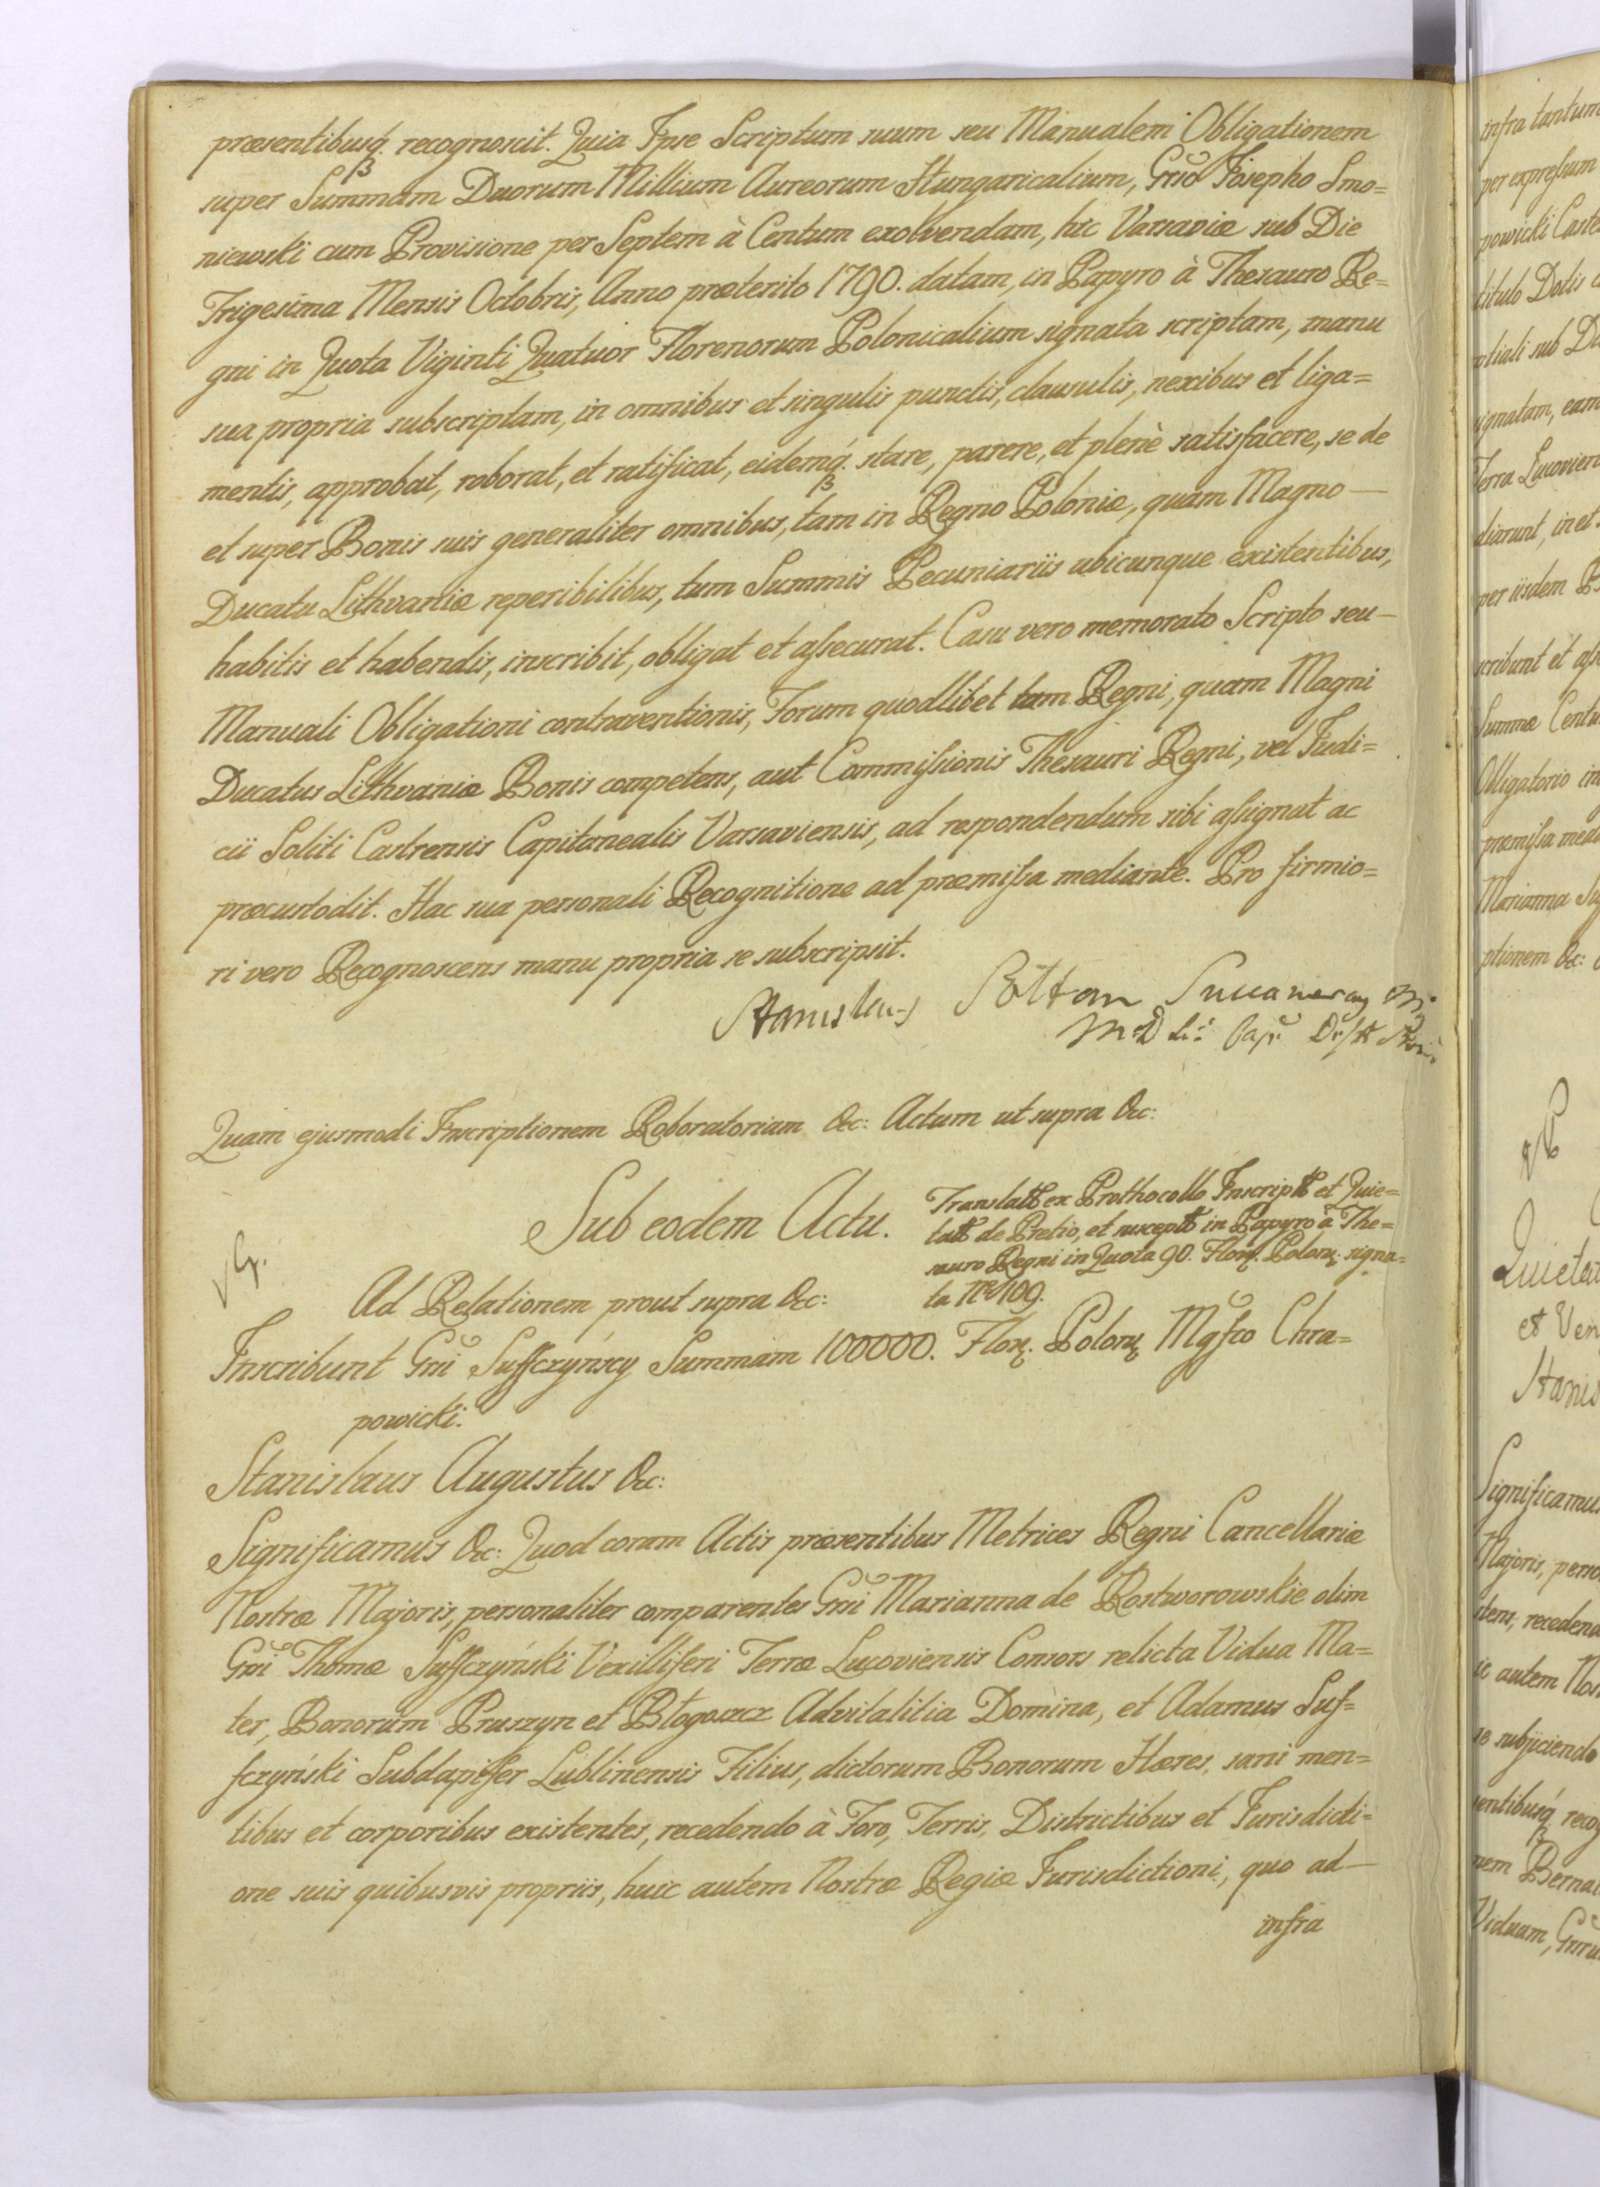 præsentibusq́ʒ recognoscit. Quia Ipse Scriptum suum seu Manualem Obligationem
super Summam Duorum Millium Aureorum Hungaricalium, Gnõ Josepho Smo=
niewskï cum Provisione per Septem à Centum exolvendam, hic Varsaviæ sub Die
Trigesima Mensis Octobris, Anno præterito 1790. datam, in Papyro à Thesauro Re=
gni in Quota Viginti Quatuor Florenorum Polonicalium signata scriptam, manu
sua propria subscriptam, in omnibus et singulis punctis, clausulis, nexibus et liga=
mentis, approbat, roborat, et ratificat, eidemq́ʒ stare, parere, et plenè satisfacere, se de
et super Bonis suis generaliter omnibus, tam in Regno Poloniæ, quam Magno —
Ducatu Lithvaniæ reperibilibus, tum Summis Pecuniariis ubicunque existentibus,
habitis et habendis, inscribit, obligat et assecurat. Casu vero memorato Scripto seu —
Manuali Obligationi contraventionis, Forum quodlibet tam Regni, quam Magni
Ducatus Lithvaniæ Bonis competens, aut Commissionis Thesauri Regni, vel Judi=
cii Soliti Castrensis Capitanealis Varsaviensis, ad respondendum sibi assignat ac
præcustodit. Hac sua personali Recognitione ad præmissa mediante. Pro firmio=
ri vero Recognoscens manu propria se subscripsit.
Stanislaus Sołtan
Quam ejusmodi Inscriptionem Roboratoriam &c: Actum ut supra &c:
Sub eodem Actu.
Translatt ex Prothocollo Inscriptt et Quie=
tatt de Pretio, et susceptt in Papyro à The=
sauro Regni in Quota 90. Florʒ. Polonʒ. signa=
ta Nro 109.
Ad Relationem prout supra &c:
Inscribunt Gnï Suffczyńscy Summam 100000. Florʒ. Polonʒ Mgfco Chra=
powickï.
Stanislaus Augustus &c:
Significamus &c: Quod coram Actis præsentibus Metrices Regni Cancellariæ
Nostræ Majoris, personaliter comparentes Gnï Marianna de Rostworowskie olim
Gnï Thomæ Suffczyńskï Vexilliferi Terræ Lucoviensis Consors relicta Vidua Ma=
ter, Bonorum Pruszyn et Błogoszcz Advitalitia Domina, et Adamus Suf=
fczyńskï Subdapifer Lublinensis Filius, dictorum Bonorum Hæres, sani men=
tibus et corporibus existentes, recedendo à Foro, Terris, Districtibus et Jurisdicti=
one suis quibusvis propriis, huic autem Nostræ Regiæ Jurisdictioni, quo ad —
infra